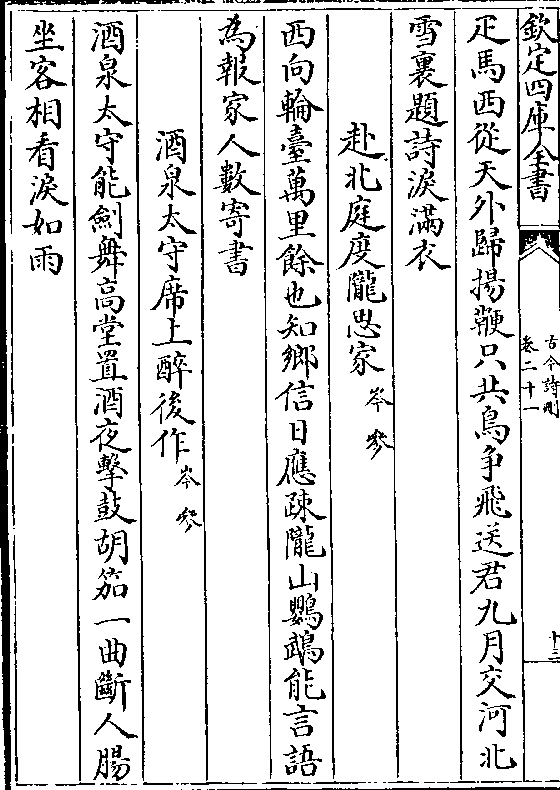 欽定四庫全書
古今詩刪
卷二十一
十三
疋馬西從天外歸揚鞭只共鳥争飛送君九月交河北
雪裏題詩淚滿衣
赴北庭度隴思家
岑參
西向輪臺萬里餘也知鄉信日應疎隴山鸚鵡能言語
為報家人數寄書
酒泉太守席上醉後作
岑參
酒泉太守能劍舞高堂置酒夜擊鼓胡笳一曲斷人腸
坐客相看淚如雨